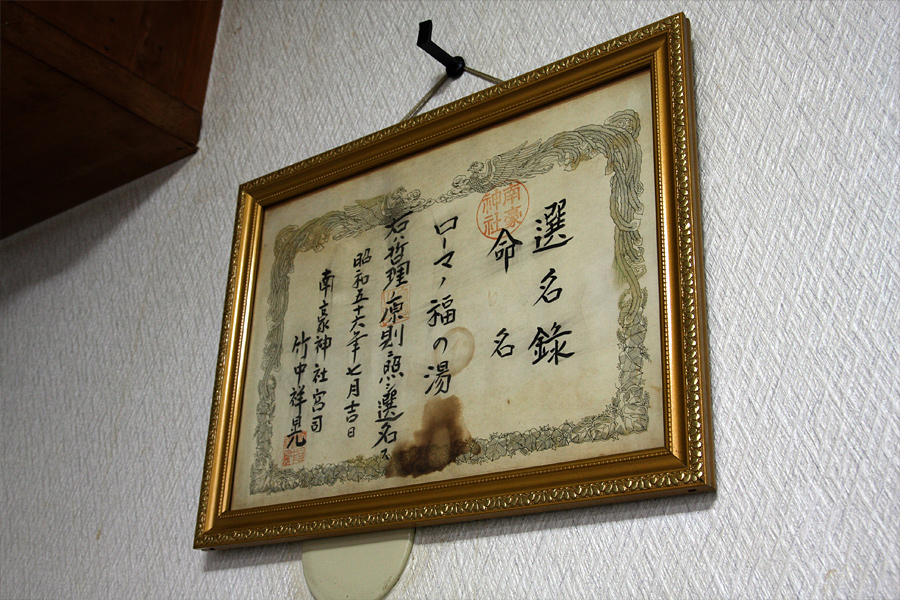 選名錄
命名
南豪神社
ローマノ福の湯
右ハ哲理ノ原則ニ照シ選名ス
昭和五十六年七月吉日
南豪神社宮司
竹中祥晃